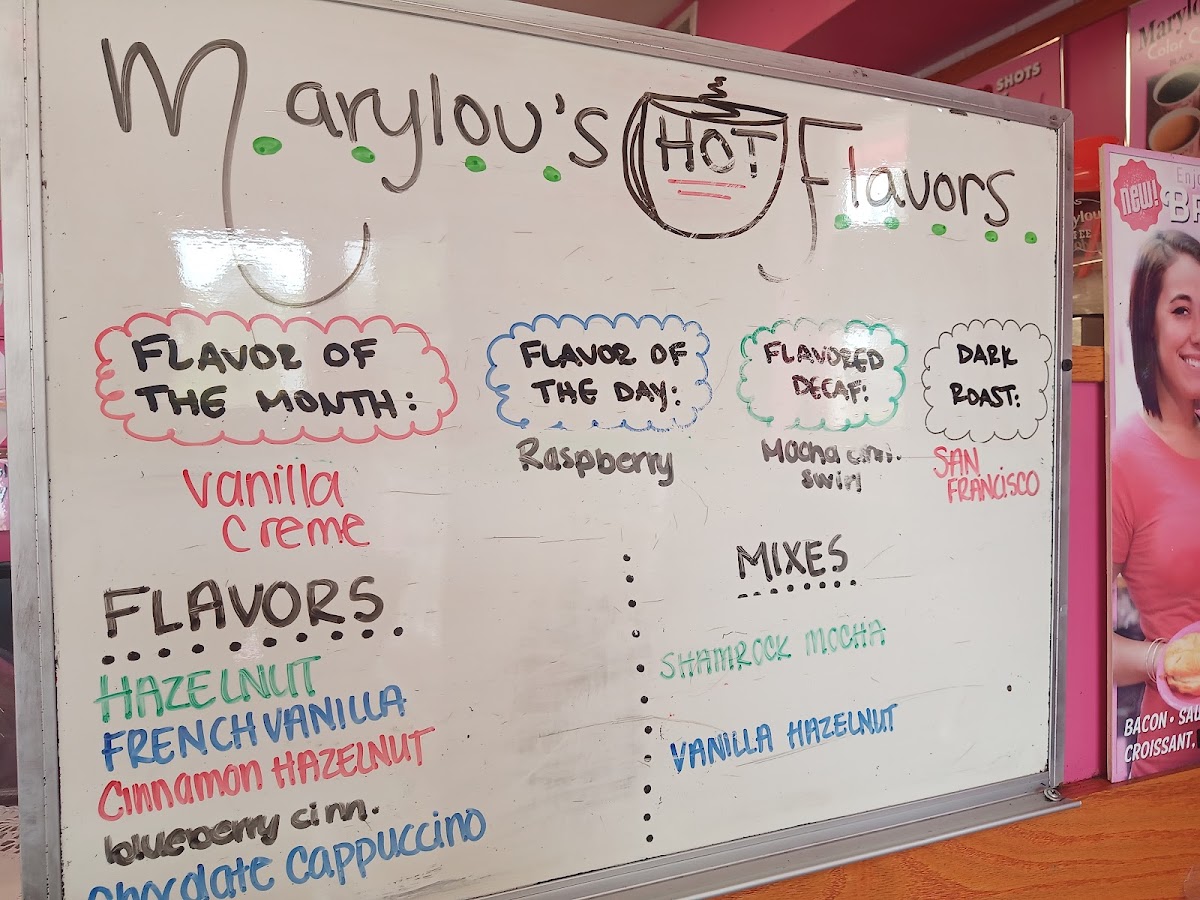 Marylou's HOT Flavors
FLAVOR OF
THE MONTH:
vanilla
creme
FLAVOR OF
THE DAY:
Raspberry
FLAVORED
DECAF:
Mocha cinn.
swirl
DARK
ROAST:
SAN
FRANCISCO
FLAVORS
HAZELNUT
FRENCH VANILLA
Cinnamon HAZELNUT
blueberry cinn.
chocolate cappuccino
MIXES
SHAMROCK MOCHA
VANILLA HAZELNUT
SHOTS
Marylou
Color C
BLACK
new!
Enjo
BR
BACON • SAU
CROISSANT,